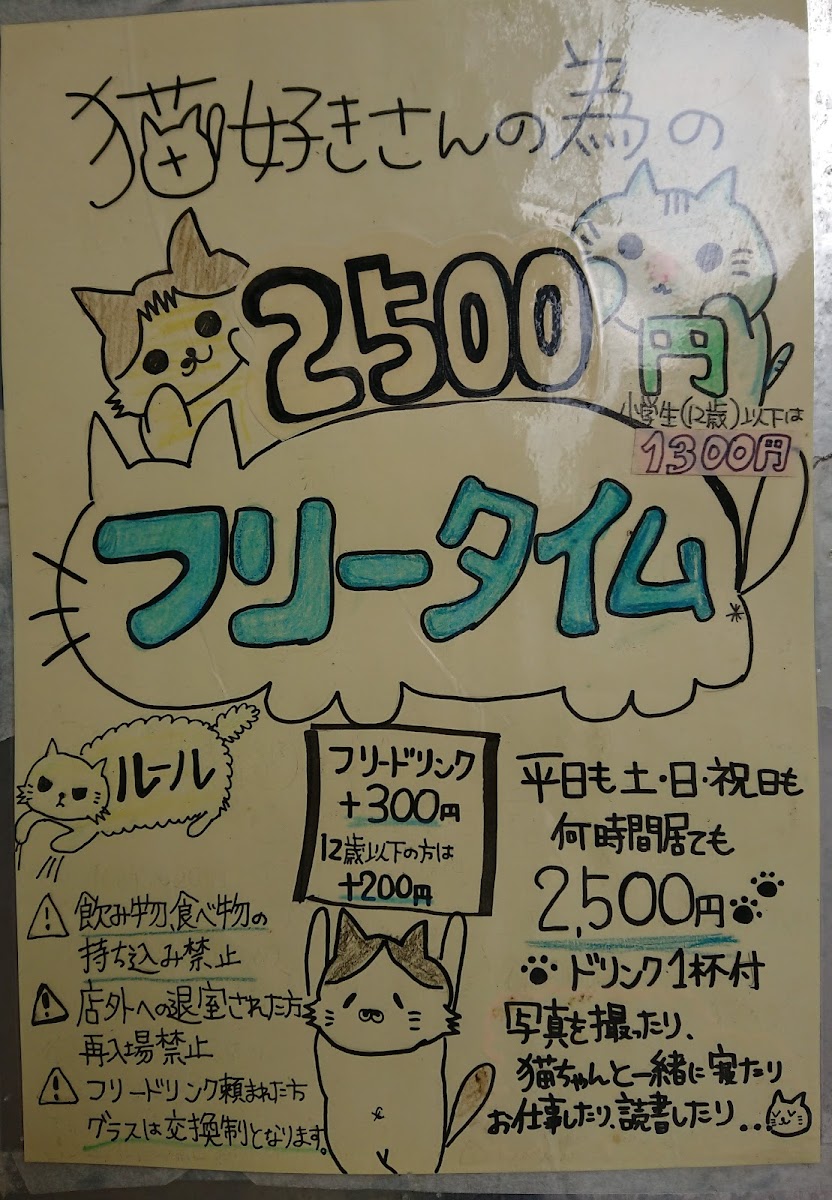 猫好きさんの為の
2500円
小学生(12歳)以下は
1300円
フリータイム
ルール
⚠飲み物、食べ物の
持ち込み禁止
⚠店外への退室された方
再入場禁止
⚠フリードリンク頼まれた方
グラスは交換制となります。
フリードリンク
+300円
12歳以下の方は
+200円
平日も土・日・祝日も
何時間居ても
2,500円
ドリンク1杯付
写真を撮ったり、
猫ちゃんと一緒に寝たり
お仕事したり、読書したり...